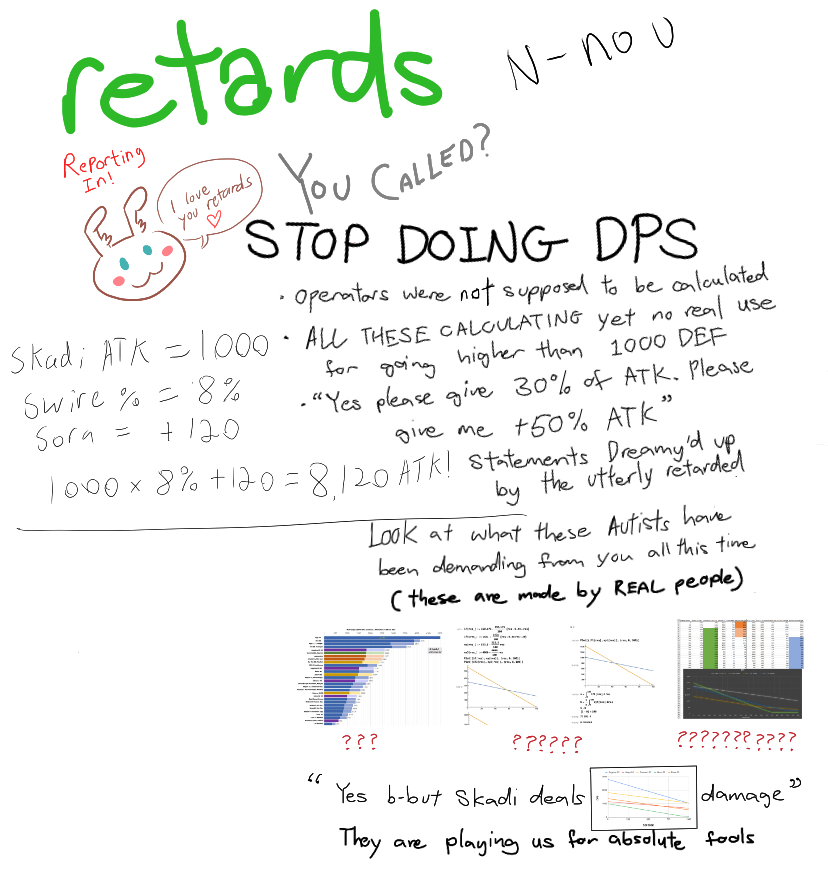 retards
N-no U
Reporting
In!
I love
you retards
YOU CALLED?
STOP DOING DPS
• Operators were not supposed to be calculated
• ALL THESE CALCULATING yet no real use
for going higher than 1000 DEF
• "Yes please give 30% of ATK. Please
give me +50% ATK"
Statements Dreamy'd up
by the utterly retarded
Skadi ATK = 1000
Swire % = 8%
Sora = +120
1000 x 8% + 120 = 8,120 ATK!
Look at what these Autists have
been demanding from you all this time
(these are made by REAL people)
???
??????
???????????
"Yes b-but Skadi deals damage"
They are playing us for absolute fools